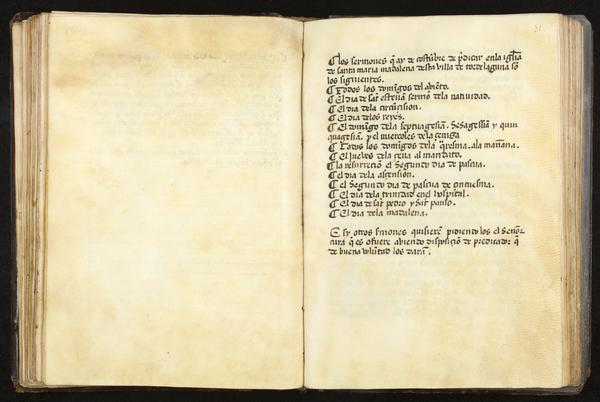 51
¶ los sermones q̃ ay de costũbre de p̃dicar enla iglĩa
de santa maria madalena desta villa de tordelaguna sõ
los siguientes.
¶ Todos los domĩgos del abiẽto.
¶ El dia de sãt esteuã sermõ dela natividad.
¶ El dia dela circũcision.
¶ El dia delos reyes.
¶ El domĩgo dela septuagesiã. sesagesiã y quin
quagesiã. y el miercoles dela çeniza
¶ Todos los domĩgos dela q̃resma. ala mañana.
¶ El jueves dela çena al mandato.
¶ la resurreciõ el segundo dia de pascua.
¶ El dia dela ascension.
¶ el segundo dia de pascua de cincuesma.
¶ El dia dela trinidad enel hospital.
¶ El dia de sãt pedro y sãt paulo.
¶ El dia dela madalena.
E sy otros s̃mones quisierẽ pidiendo los el señor
cura q̃ es o fuere abiendo dispusiciõ de predicador q̃
de buena volũtad los darã.